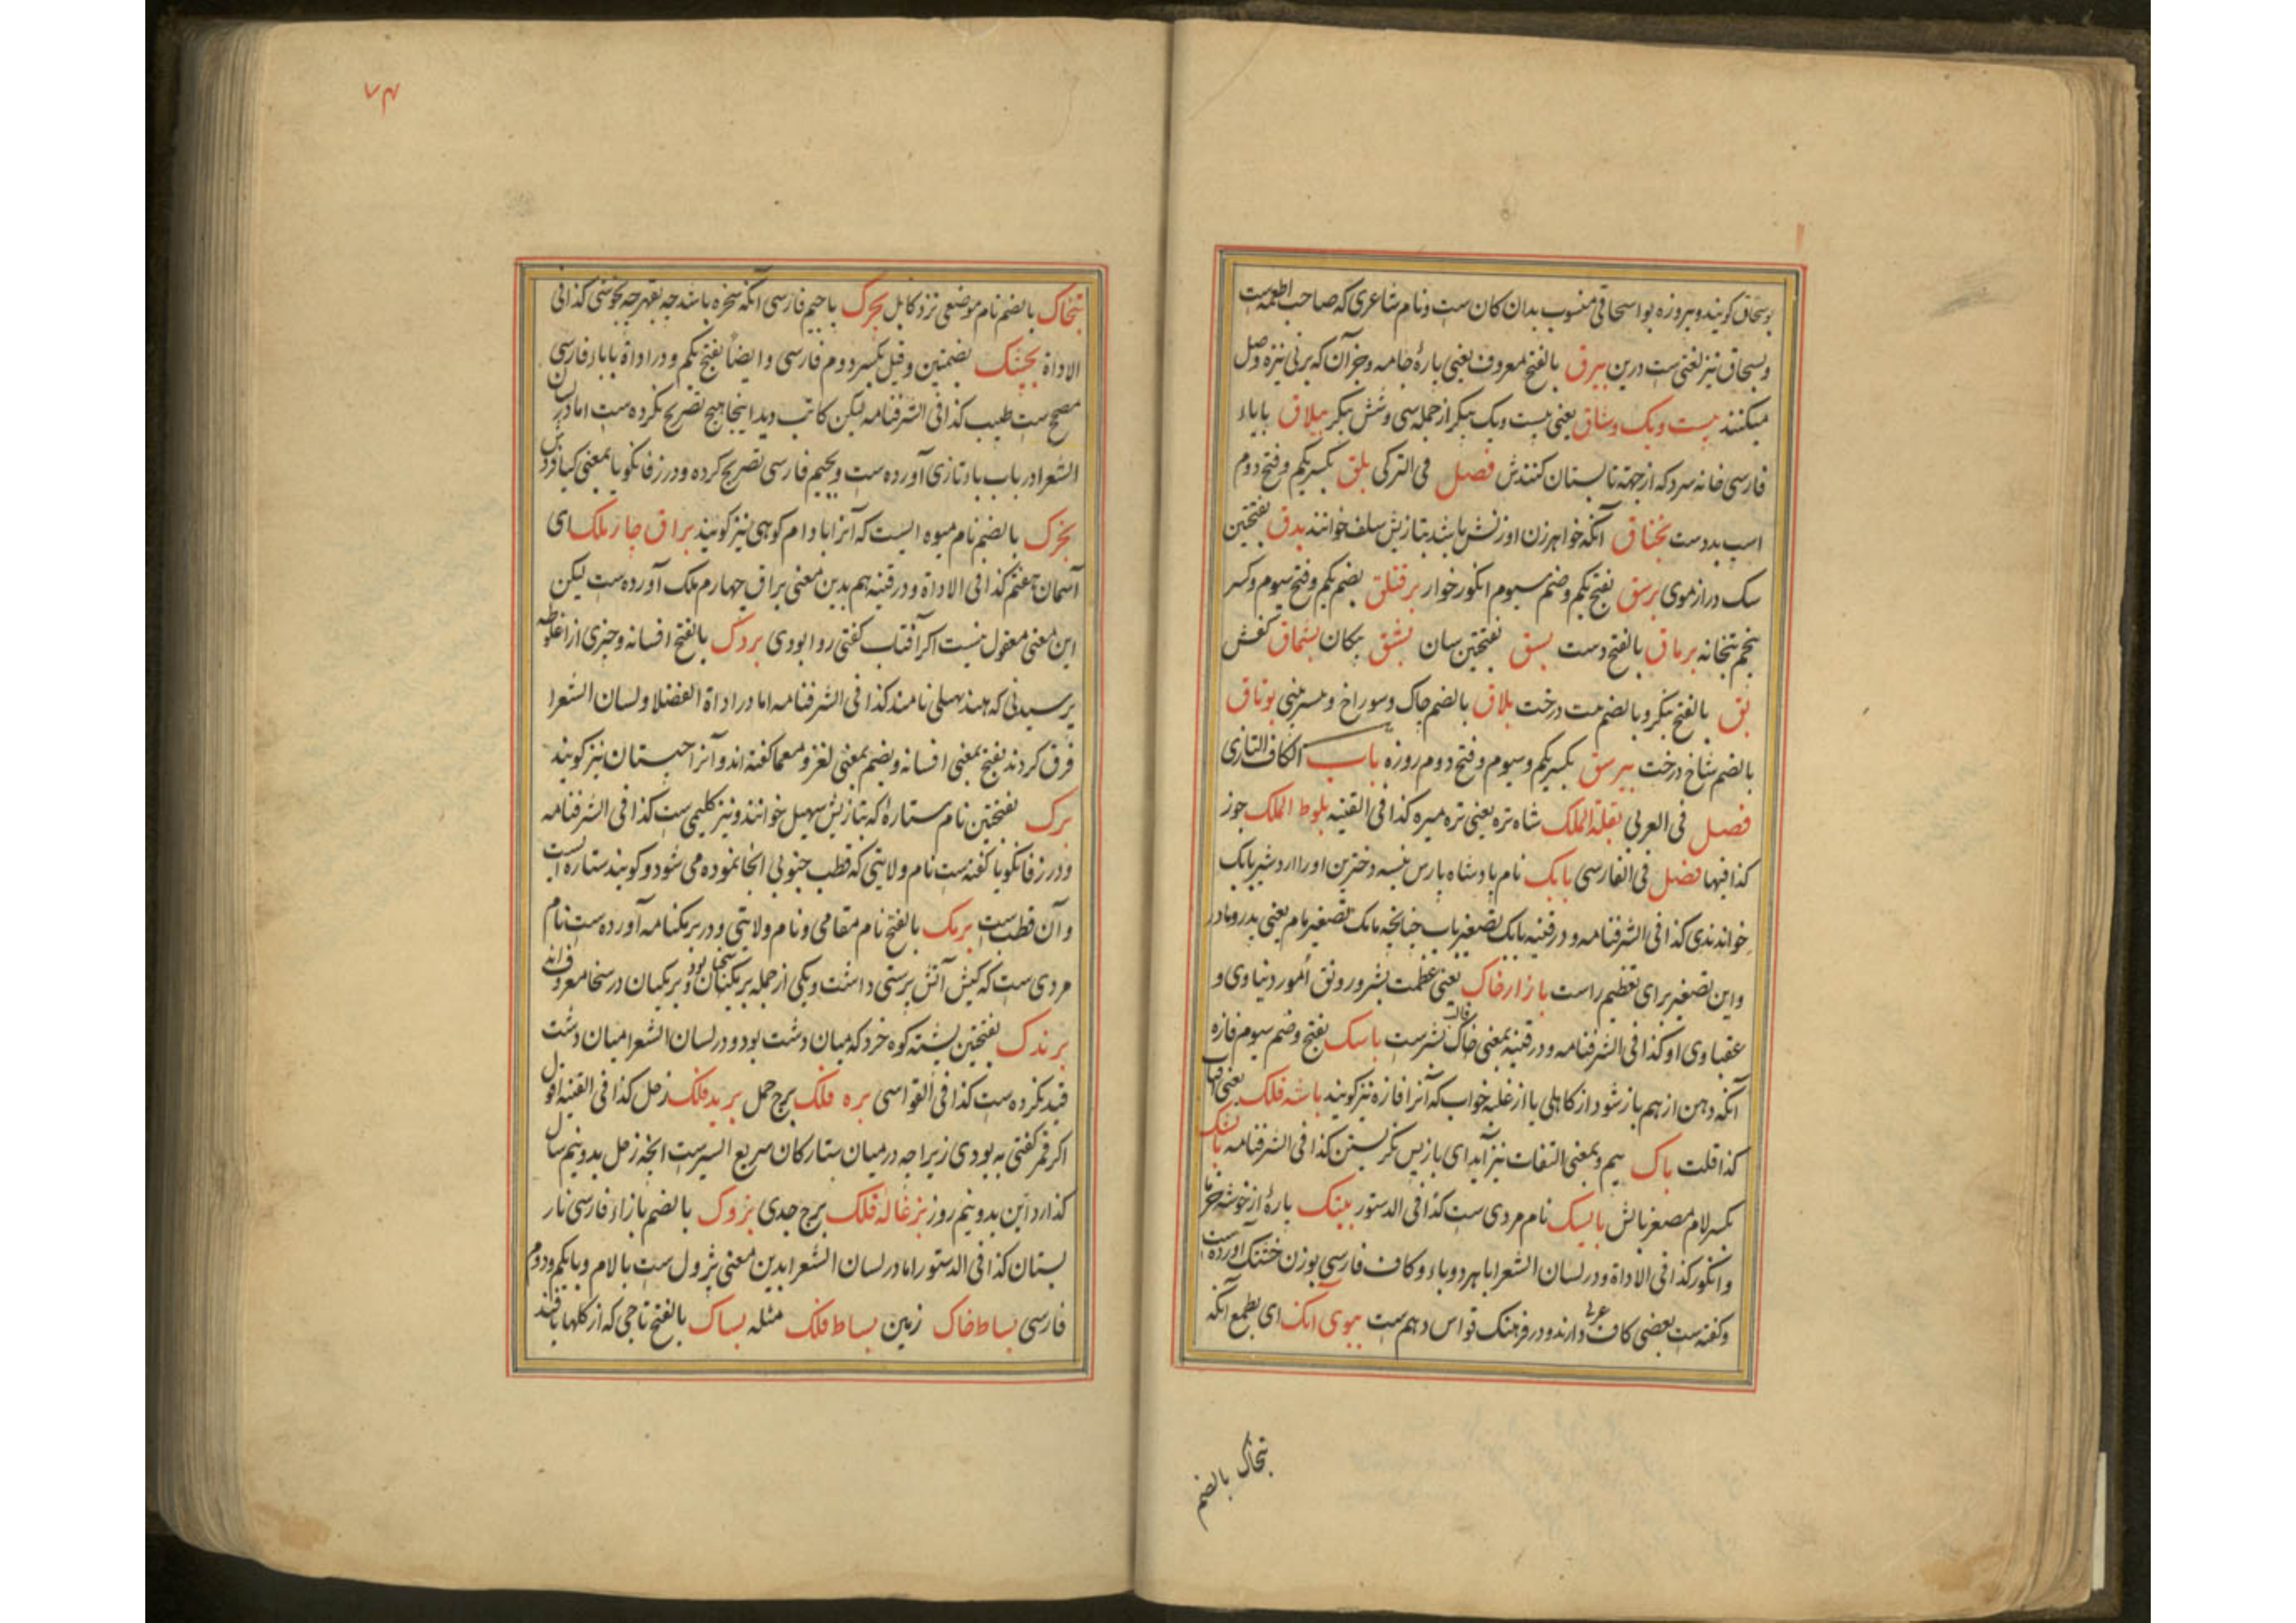 بوسحاق کویند و پیروزه بو اسحاقی منسوب بدان کان ست و نام شاعری که صاحب اطعمه است
و بسحاق نیز لغتی ست درین بیرق بالفتح معروف یعنی پارهٔ جامه و جز آن که بر نی نیزه وصل
میکنند بیست و یک وشاق یعنی بیست و یک پیکر از جمله سی و شش پیکر بیلاق بایاء
فارسی خانه سرد که از جهة تابستان کنندش فصل فی الترکی بلق بکسر یکم و فتح دوم
اسب بددست بخناق آنکه خواهر زن او زنش باشد بتازیش سلف خوانند بدق بفتحتین
سک دراز موی برسق بفتح یکم و ضم سیوم انکور خوار برقتلق بضم یکم و فتح سیوم و کسر
پنجم بتخانه برماق بالفتح دست بسق بفتحتین سان بشق پیکان بشماق کفش
بق بالفتح بنکر و بالضم درخت بلاق بالضم چاک و سوراخ بوتاق
بالضم شاخ درخت بیرسق بکسر یکم و سیوم و فتح دوم روزه باب الکاف التازی
فصل فی العربی بقلة الملک شاه تره یعنی تره میره کذا فی القنیه بلوط الملک جوز
کذا فیها فصل فی الفارسی بابک نام پادشاه پارس نبسه دخترین او را اردشیر بابک
خواندندی کذا فی الشرفنامه و در قنیه بابک تصغیر باب چنانچه مامک تصغیر مام یعنی پدر و مادر
و این تصغیر برای تعظیم راست بازار خاک یعنی عظمت بشر و رونق امور دنیاوی و
عقباوی او کذا فی الشرفنامه و در قنیه بمعنی خاک بشرست باسک بفتح و ضم سیوم فازه
آنکه دهن از هم باز شود از کاهلی یا از غلبه خواب که آنرا فازه نیز کویند باشه فلک یعنی
کذا قلت باک بیم و بمعنی التفات نیز آید ای باز پس نکرستن کذا فی الشرفنامه
بکسر لام مصغر بالش بالیک نام مردی ست کذا فی الدستور بینک پارهٔ از خوشه خرما
و انکور کذا فی الاداة و در لسان الشعرا باهر دو باء و کاف فارسی بوزن خشنک آورده ست
و کفته ست بعضی کاف عربی دارند و در فرهنک قواس دهم ست ببوی آنک ای بطمع آنکه
بتخاک بالضم
۷۴
بتخاک بالضم نام موضعی نزد کابل بجرک باجیم فارسی آنکه سخره باشد چه بقهر چه بخوشی کذا فی
الاداة بجشک بضمتین و قیل بکسر دوم فارسی و ایضاً بفتح یکم و در اداة باباء فارسی
مصحح ست طبیب کذا فی الشرفنامه لیکن کاتب دید اینجا هیچ تصریح نکرده ست اما در لسان
الشعرا در باب باء تازی آورده ست و بجیم فارسی تصریح کرده و در زفانکویا بمعنی کیا فروش
بخرک بالضم نام میوه ایست که آنرا بادام کوهی نیز کویند براق چار ملک ای
آسمان هفتم کذا فی الاداة و در قنیه هم بدین معنی براق چهارم ملک آورده ست لیکن
این معنی معقول نیست اکر آفتاب کفتی روا بودی بردک بالفتح افسانه و چیزی از اغلوطه
پرسیدنی که هند پهیلی نامند کذا فی الشرفنامه اما در اداة الفضلا و لسان الشعرا
فرق کردند بفتح بمعنی افسانه و بضم بمعنی لغز و معما کفته اند و آنرا چیستان نیز کویند
برک بفتحتین نام ستارهٔ که بتازیش سهیل خوانند و نیز کلیمی ست کذا فی الشرفنامه
و در زفانکویا کفته ست نام ولایتی که قطب جنوبی آنجا نموده می شود و کویند ستاره است
و آن قطب ست برمک بالفتح نام مقامی و نام ولایتی و در برمکنامه آورده ست نام
مردی ست که کیش آتش پرستی داشت و یکی از جمله برمکیان بود و برمکیان در سخا معروف اند
برندک بفتحتین پشته کوه خرد که میان دشت بود و در لسان الشعرا میان دشت
قید نکرده ست کذا فی القواسی بره فلک برج حمل برید فلک زحل کذا فی القنیه اقول
اکر قمر کفتی به بودی زیرا چه در میان ستارکان سریع السیرست آنچه زحل بدو نیم سال
کذارد این بدو نیم روز بزغاله فلک برج جدی بزوک بالضم بازاء فارسی نار
بستان کذا فی الدستور اما در لسان الشعرا بدین معنی بژول ست بالام و بایکم و دوم
فارسی بساط خاک زمین بساط فلک مثله بساک بالفتح تاجی که از کلها بافند